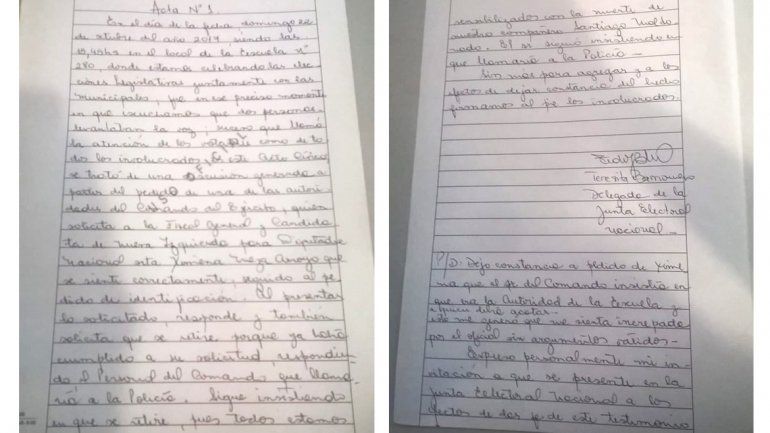 Acta N° 1
En el día de la fecha domingo 22
de octubre del año 2017, siendo las
15,45hs en el local de la Escuela N°
280, donde estamos celebrando las elec
ciones Legislativas juntamente con las
municipales, fue en ese preciso momento
en que escuchamos que dos personas
levantaban la voz, suceso que llamó
la atención de los votantes como de to
dos los involucrados en este Acto Cívico
se trató de una discusión generada a
partir del pedido de una de las autori
dades del Comando del Ejército, quien
solicita a la Fiscal General y Candida
ta de Nueva Izquierda para Diputada
Nacional srta Ximena Meza Arroyo que
se siente correctamente, seguido al pe
dido de identificación. Al presentar
lo solicitado, responde y también
solicita que se retire porque ya había
cumplido a su solicitud, respondien
do el Personal del Comando que llama
ría a la Policía. Sigue insistiendo
en que se retire, pues todos estamos
sensibilizados con la muerte de
nuestro compañero Santiago Maldo
nado. El se siguió insistiendo en
que llamaría a la Policía -
Sin más para agregar y a los
efectos de dejar constancia del hecho
firmamos al pie los involucrados.
Teresita
Delegada de la
Junta Electoral
Nacional -
P/D: Dejo constancia a pedido de Xime
na que el jefe del Comando insistía en
que era la Autoridad de la Escuela y
esto me generó que me sienta increpada
por el oficial sin argumentos válidos -
Expreso personalmente mi in
vitación a que se presente en la
Junta Electoral Nacional a los
efectos de dar fe de este testimonio